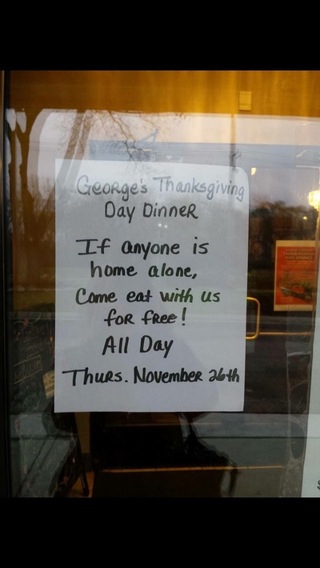 George's Thanksgiving
Day Dinner
If anyone is
home alone,
Come eat with us
for free!
All Day
Thurs. November 26th